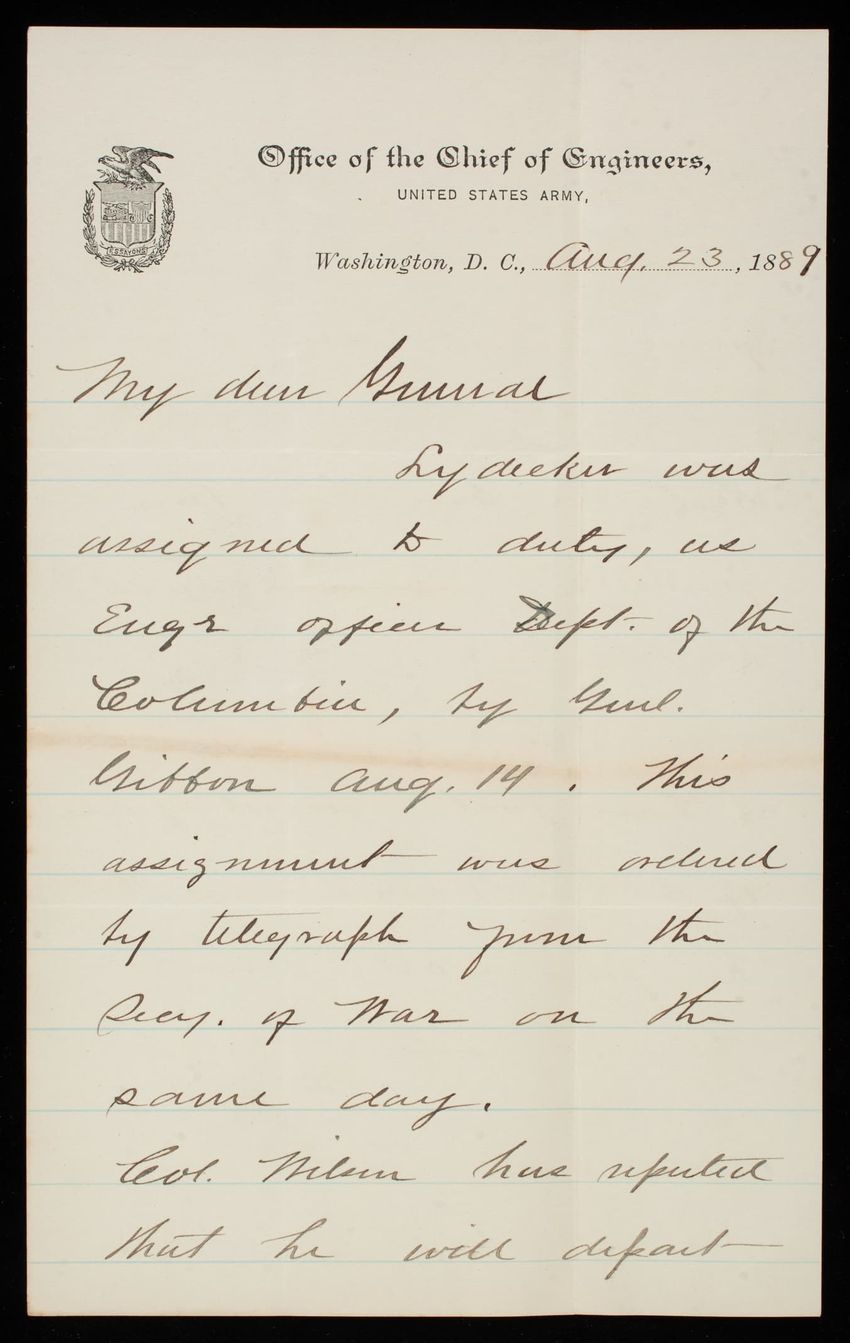 Office of the Chief of Engineers,
UNITED STATES ARMY,
ESSAYONS
Washington, D. C., Aug. 23, 1889
My dear General
Lydecker was
assigned to duty, as
Engr officer Dept. of the
Columbia, by Genl.
Gibbon Aug. 14. This
assignment was ordered
by telegraph from the
Secy. of War on the
same day.
Col. Wilson has reported
that he will depart